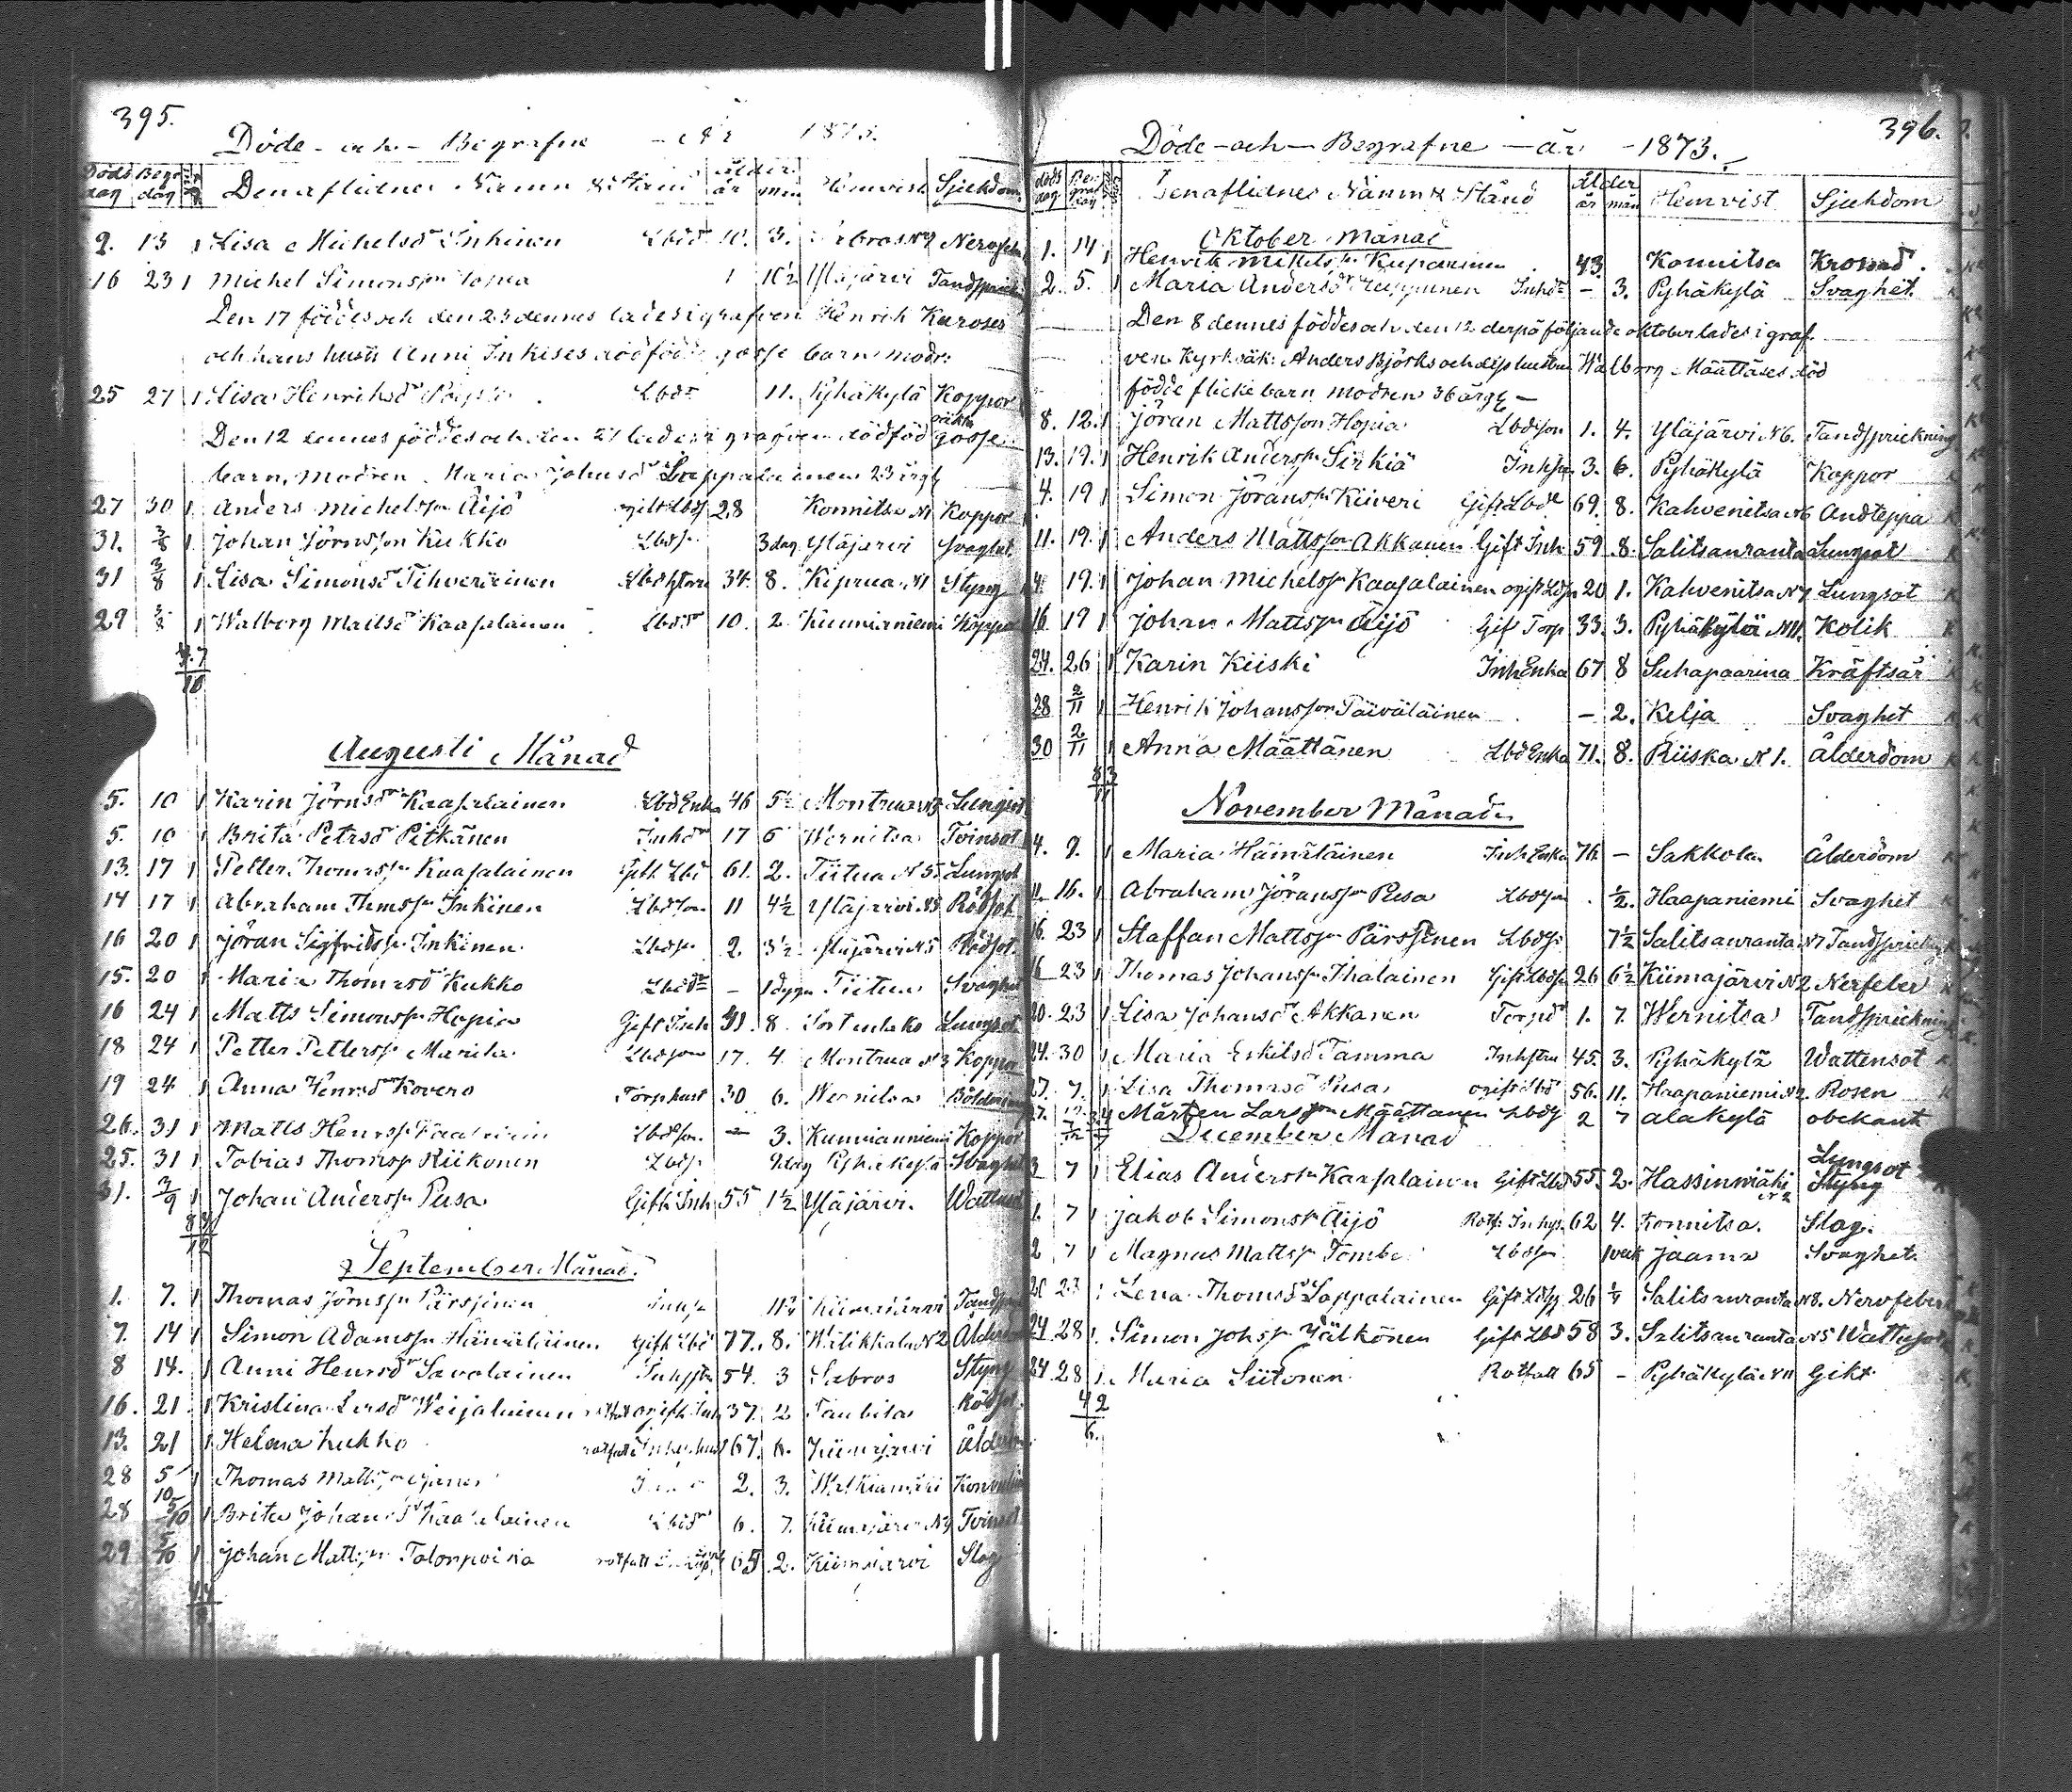 395.
Döde - och - Begrafne - år 1873.
Döds dag Begr dag Den aflidnes Namn & Stånd ålder år mån Hemvist Sjukdom
9. 13 1 Lisa Michelsdr Inkinen Lbdr 10. 3.
16 23 1 Michel Simonsson Hopia 1 10½ Yläjärvi
Den 17 föddes och den 23 dennes lades i grafven Henrik Karoses
och hans hustr Anni Inkises dödfödde gosse barn, modr:
25 27 1 Lisa Henriksdr Lbdr 11. Pyhäkylä Koppor
Den 12 dennes föddes och den 27 lades i grafven dödföd gosse
barn, modren Maria Johnsdr Lappalainen 23 årg
27 30 1 Anders Michelsson Äijö 28 Konnitsa N1 Koppor
31. 3/8 1 Johan Jörnsson Kukko Lbdsn 3 dag Yläjärvi Svaghet
31 3/8 1 Lisa Simonsdr Tihveräinen 34. 8. Kiprua N1 Styng
29 3/8 1 Walborg Mattsdr Kaasalainen Lbdr 10. 2 Kunnianiemi Koppor
47
10
Augusti Månad
5. 10 1 Karin Jörnsdr Kaasalainen Lbd Enka 46 5½ Montrua N3 Lungsot
5. 10 1 Brita Petrsdr Pitkänen Inhdr 17 6 Wernitsa Tvinsot
13. 17 1 Petter Thomsson Kaasalainen Gift Lbd 61. 2. Tiitua N5. Lungsot
14 17 1 Abraham Thmsson Inkinen Lbdson 11 4½ Yläjärvi N5 Rödsot
16 20 1 Jöran Sigfridsson Inkinen Lbdsn 2. 3½ Yläjärvi N5 Rödsot.
15. 20 1 Maria Thomasdr Kukko Lbdr - 1 dygn Tiitua Svaghet
16 24 1 Matts Simonsson Hopia Gift Inh 31. 8. Lungsot
18 24 1 Petter Pettersson Marila Lbdson 17. 4. Montrua N3 Koppor
19 24 1 Anna Henrsdr Kovero Torphust 30 6. Wernitsa
26. 31 1 Matts Henrsson Lbdson. - 3. Kunnianniemi Koppor
25. 31 1 Tobias Thomsson Riikonen Lbdsn 9 dag Pyhäkylä Svaghet
31. 3/9 1 Johan Andersson Pusa Gift Inh 55 1½ Yläjärvi. Wattusot
12
September Månad.
1. 7. 1 Thomas Jörnsson Pärssinen Inhsn Kiimajärvi
7. 14 1 Simon Adamsson Hämäläinen Gift Lbd 77. 8. Wilikkala N2 Ålderdom
8 14. 1 Anni Henrsdr Savolainen 54. 3 Sabros Styng
16. 21. 1 Kristina Larsdr Weijalainen ogift Inh 37. 2 Taubila Rödsot
13. 21 1 Helena Kukko 67. 6. Kiimajärvi Ålderdom
28 5/10 1 Thomas Mattsson 2. 3. Walkiamäki
28 5/10 1 Brita Johansdr Kaasalainen Lbdr 6. 7. Kiimajärvi Tvinsot
29 5/10 1 Johan Mattsson Talonpoika 65 2. Kiimajärvi Slag
396.
Döde - och - Begrafne - år - 1873.
döds dag Be- graf dag Den aflidnes Namn & Stånd ålder år mån Hemvist Sjukdom
Oktober Månad
1. 14 1 Henrik Mikelsson Kuparinen 43. Konnitsa
2. 5. 1 Maria Andersdr Inhdr - 3. Pyhäkylä Svaghet.
Den 8 dennes föddes och den 12 derpå följande oktober lades i graf-
ven Kyrkväk: Anders Björks och dess hustrus Walborg Määttäses död
födde flicke barn modren 36 årg -
8. 12. 1 Jöran Mattsson Hopia Lbdson 1. 4. Yläjärvi N6. Tandsprickning
13. 19. 1 Henrik Andersson Sirkiä Inhsn 3. 6. Pyhäkylä Koppor
4. 19 1 Simon Jöransson Kiiveri Gift Lbd 69. 8. Kahvenitsa N6 Andteppa
11. 19. 1 Anders Mattsson Akkanen Gift Inh 59. 8. Salitsanranta Lungsot
4. 19. 1 Johan Michelsson Kaasalainen ogift Ldsn 20 1. Kahvenitsa N7 Lungsot
16 19 1 Johan Mattsson Äijö Gif Torp 33. 3. Pyhäkylä N11. Kolik
24. 26 1 Karin Kiiski Inh Enka 67 8 Suhapaarina Kräftsår
28 2/11 1 Henrik Johansson Päiväläinen - 2. Kelja Svaghet
30 2/11 1 Anna Määttänen Lbd Enka 71. 8. Riiska N1. Ålderdom
November Månad
4. 9. 1 Maria Hämäläinen Inh Enka 76. - Sakkola Ålderdom
11. 16. 1 Abraham Jöransson Pusa Lbdsn ½. Haapaniemi Svaghet
16. 23 1 Staffan Mattsson Pärssinen Lbdsn 7½ Salitsanranta N7 Tandsprickning
16 23 1 Thomas Johansson Ihalainen Gift Lbdsn 26 6½ Kiimajärvi N2 Nerfeber
20. 23 1 Lisa Johansdr Akkanen Torpdr 1. 7. Wernitsa Tandsprickning
24. 30 1 Maria Eskilsdr Tamma Inhstru 45. 3. Pyhäkylä Wattensot
27. 7. 1 Lisa Thomasdr Pusa ogift Lbdr 56. 11. Haapaniemi N2 Rosen
27. Mårten Larsson Määttänen Lbdsn 2 7 Alakylä obekant
December Månad
3 7 1 Elias Andersson Kaasalainen Gift Lbd 55. 2. Hassinmäki N2 Lungsot Styng
1. 7 1 Jakob Simonsson Äijö Rotf. Inhys. 62 4. Konnitsa. Slag.
2 7 1 Magnus Mattsson Tombe Lbdson 1 vek Jaama Svaghet.
20 23 1 Lena Thomsdr Lappalainen Gift Ldsn 26 ¼ Salitsanranta N8. Nervfeber
24 28 1. Simon Johsson Jälkönen Gift Lbd 58 3. Salitsanranta N5 Wattusot
24. 28 1. Maria Siitonen Rotfatt 65 - Pyhäkylä N11 Gikt
42
6.